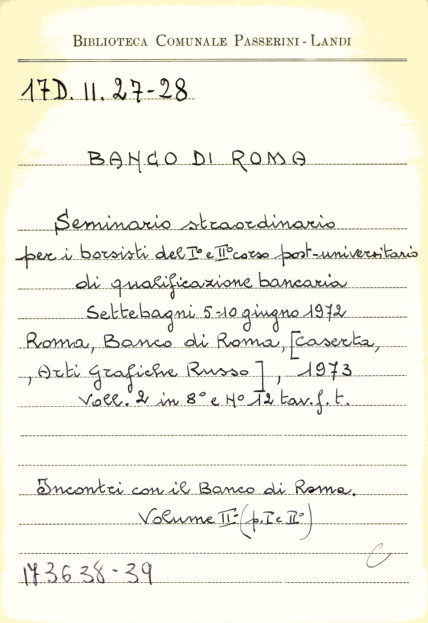 BIBLIOTECA COMUNALE PASSERINI - LANDI
17D. II. 27-28
BANCO DI ROMA
Seminario straordinario
per i borsisti del I° e II° corso post-universitario
di qualificazione bancaria
Settebagni 5-10 giugno 1972
Roma, Banco di Roma, [Caserta,
, Arti Grafiche Russo], 1973
Voll. 2 in 8° e 4° 12 tav. f. t.
Incontri con il Banco di Roma.
Volume II° (p. I e II°)
C
173638-39